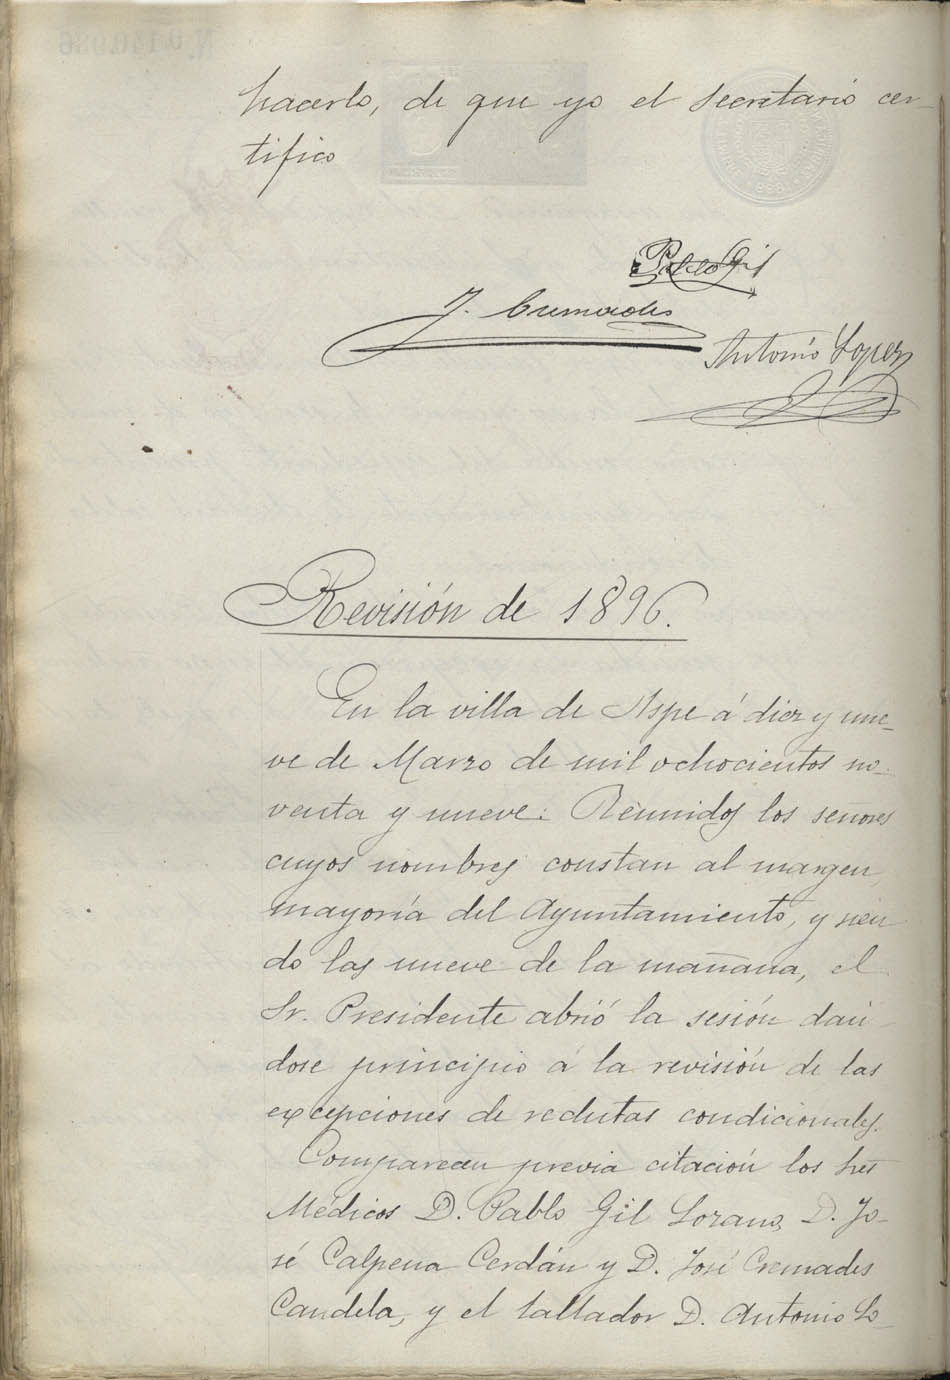 hacerlo, de que yo el secretario cer-
tifico
Pablo Gil
J. Cremades
Antonio Lopez
Revisión de 1896.
En la villa de Aspe á diez y nue-
ve de Marzo de mil ochocientos no-
venta y nueve: Reunidos los señores
cuyos nombres constan al margen,
mayoría del Ayuntamiento, y sien
do las nueve de la mañana, el
Sr. Presidente abrió la sesión dán-
dose principio á la revisión de las
excepciones de reclutas condicionales.
Comparecen previa citación los Sres
Médicos D. Pablo Gil Lozano, D. Jo-
sé Calpena Cerdán y D. José Cremades
Candela, y el tallador D. Antonio Lo-